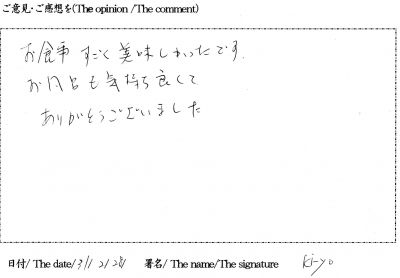 ご意見・ご感想を(The opinion /The comment)
お食事 すごく美味しかったです。
お風呂も気持ち良くて
ありがとうございました
日付/ The date/ 署名/ The name/The signature Ki-yo